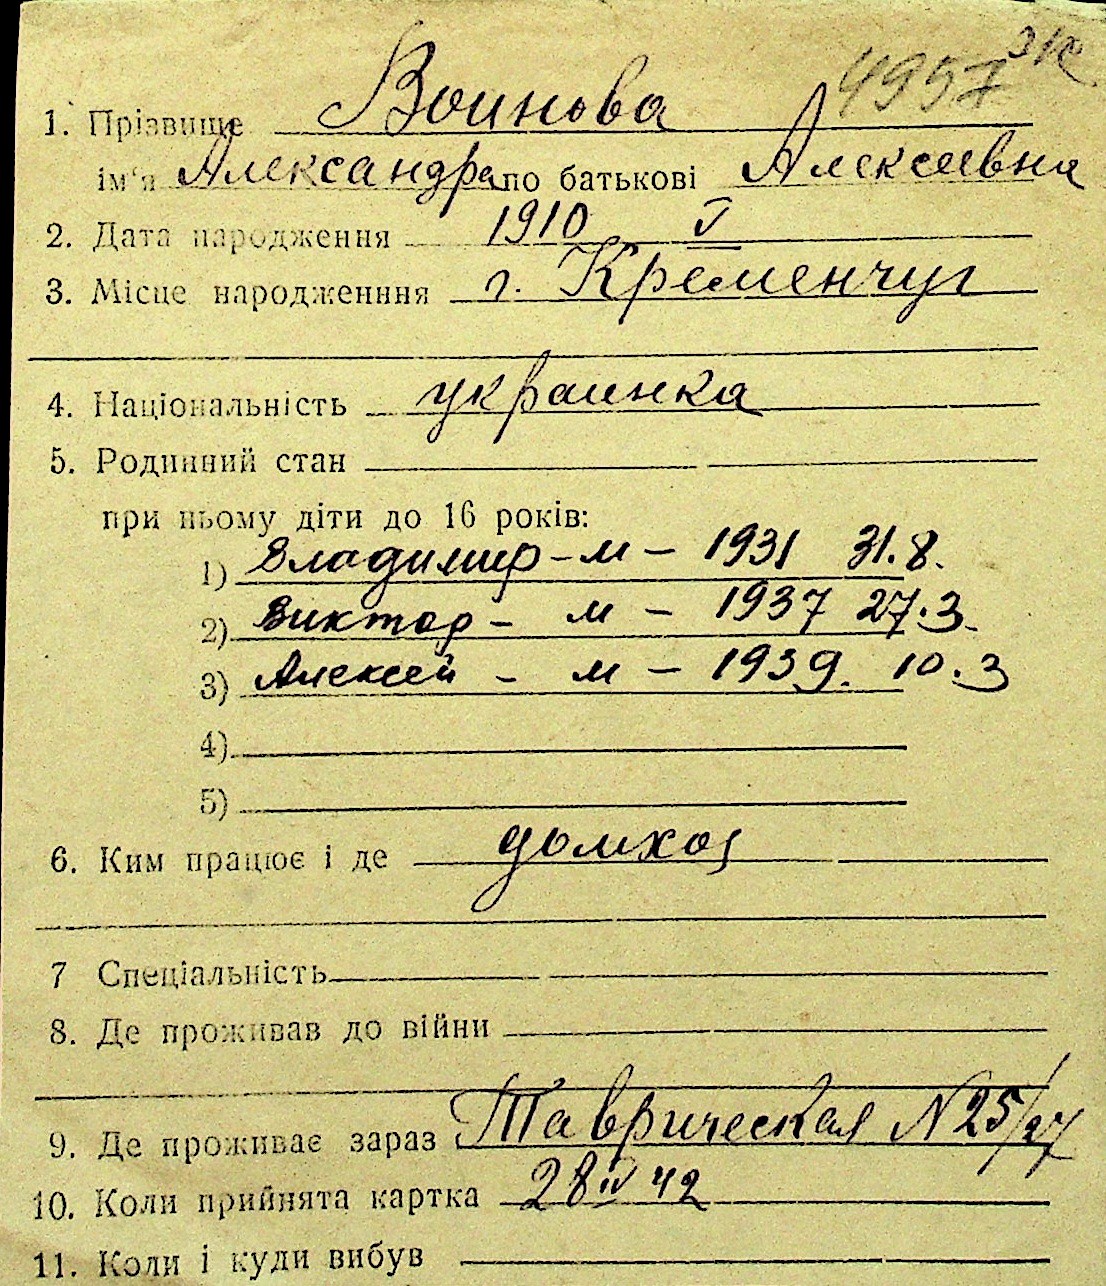 4957 зк
1. Прізвище Воинова
ім'я Александра по батькові Алексеевна
2. Дата народження 1910 V
3. Місце народженння г. Кременчуг
4. Національність украинка
5. Родинний стан
при ньому діти до 16 років:
1) Владимир - м - 1931 31.8.
2) Виктор - м - 1937 27.3.
3) Алексей - м - 1939. 10.3
4)
5)
6. Ким працює і де домхоз
7 Спеціальність
8. Де проживав до війни
9. Де проживає зараз Таврическая N 25/27
10. Коли прийнята картка 28 IV 42
11. Коли і куди вибув